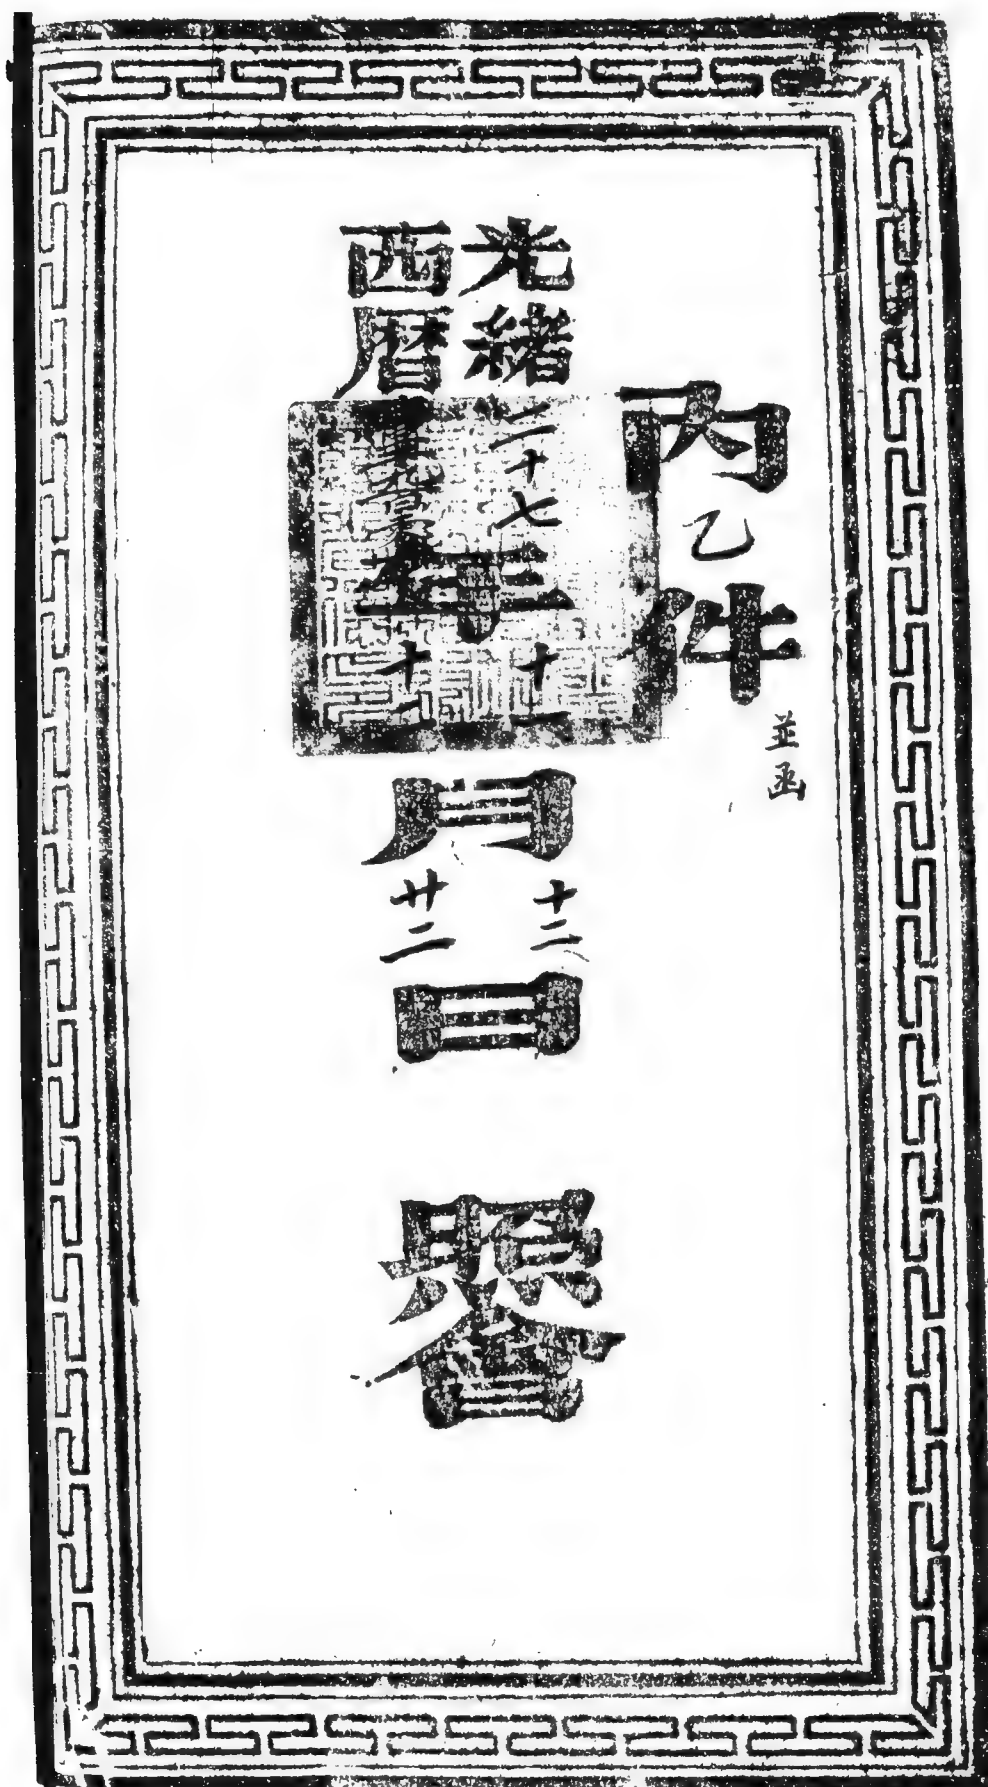 内乙件 並函
光緒二十七年十一月十二日
西曆 年十二月廿二日
照會